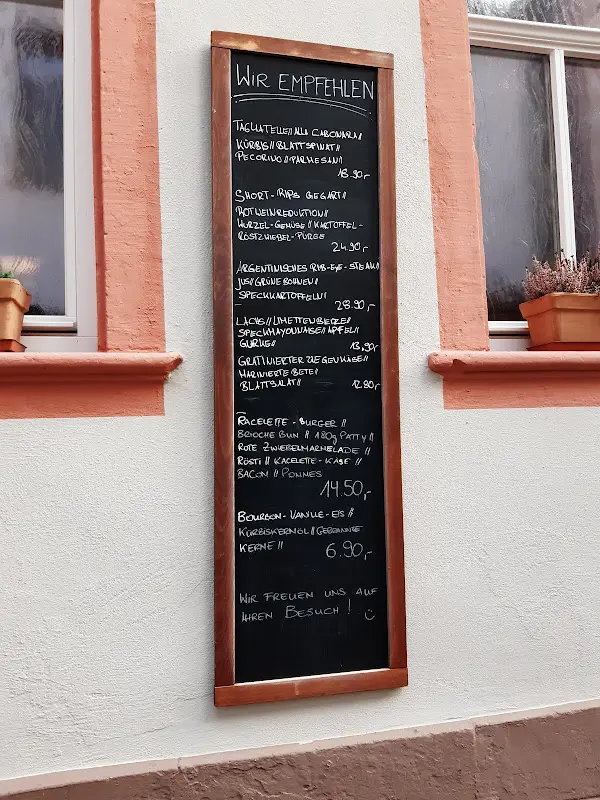 WIR EMPFEHLEN
TAGLIATELLE//ALLA CABONARA/
KÜRBIS//BLATTSPINAT//
PECORINO//PARMESAN//
18.90,-
SHORT-RIPS GEGART//
ROTWEINREDUKTION//
WURZEL-GEMÜSE//KARTOFFEL-
RÖSTZWIEBEL-PÜREE
24.90,-
ARGENTINISCHES RIB-EYE-STEAK//
JUS//GRÜNE BOHNEN//
SPECKKARTOFFELN//
28.90,-
LACHS//LIMETTENBEIZE//
SPECKMAYONNAISE//APFEL//
GURKE// 13,90,-
GRATINIERTER ZIEGENKÄSE//
MARINIERTE BETE//
BLATTSALAT// 12.80,-
RACELETTE-BURGER //
BRIOCHE BUN // 180g PATTY//
ROTE ZWIEBELMARMELADE //
RÖSTI // RACELETTE-KÄSE //
BACON // POMMES
14.50,-
BOURBON-VANILLE-EIS //
KÜRBISKERNÖL//GEBRANNTE
KERNE // 6.90,-
WIR FREUEN UNS AUF
IHREN BESUCH!